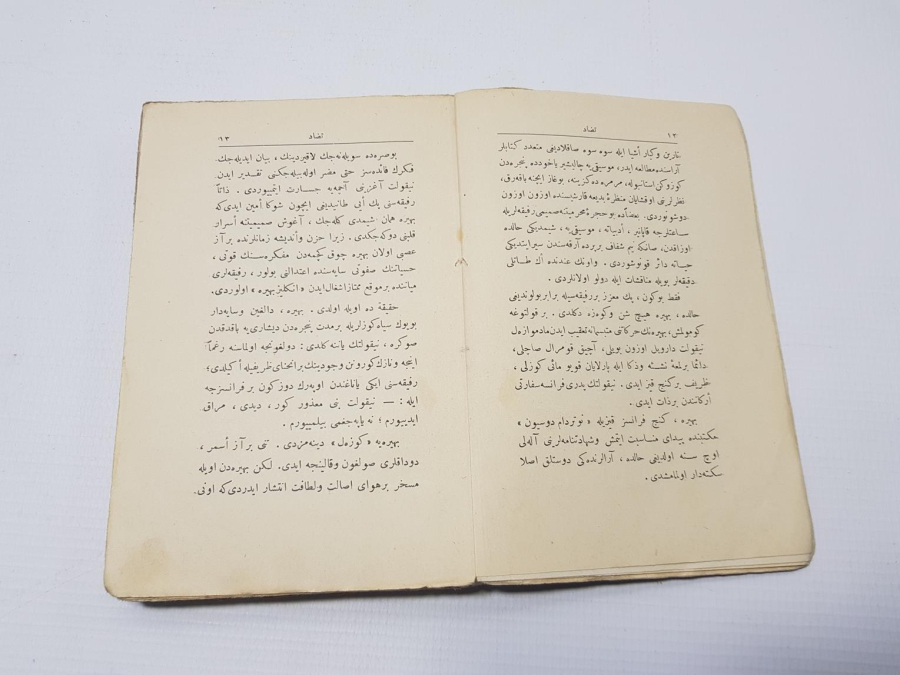 ١٢ تضاد
نازین وکبار أشیا ایله سوه سوه صاقلادیغی متعدد کتابلر
آراسنده مطالعه ایدر، موسیقی‌یه چالیشیر یاخودده پنجره‌دن
کوزوکن استانبوله، مرمره‌ده کزینه، بوغاز ایچنه باقه‌رق،
نظرلرینی اوقشایان منظرهٔ بدیعه قارشیسنده اوزون اوزون
دوشونوردی. بعضاًده بو حجرهٔ محرمیتنه صمیمی رفیقه‌لریله
ساعتلرجه قاپانیر، أدبیاته، موسیقی‌یه، شیمدیکی حالده
اوزاقدن، صانکه نیم شفاف بر پرده آرقه‌سندن سیر ایتدیکی
حیاته دائر قونوشوردی. واونك عندنده أك طاتلی
دقیقه‌لر بویله مناقشات ایله دولو اولانلردی.
فقط بوکون، پك معزز بر رفیقه‌سیله برابر بولوندیغی
حالده، بهیره هیچ شن و کوه‌زه دکلدی. بر قولتوغه
کومولمش، بهیره‌نك حرکاتنی متبسمانه تعقیب ایدن مادموازه‌ل
نیقولت دارویل اوزون بویلی، آچیق قومرال صاچلی،
دائما بر لمعهٔ نشئه و ذکا ایله پارلایان قویو مائی کوزلی،
ظریف بر کنج قیز ایدی. نیقولتك پدری فرانسه سفارتی
أرکانندن بر ذات ایدی.
بهیره، کنج فرانسز قیزیله «نوتردام دوسیون»
مکتبنده پیدای مناسبت ایتمش وشهادتنامه‌لرینی آله‌لی
اوچ سنه اولدیغی حالده، آرالرنده‌کی دوستلق اصلا
سکته‌دار اولمامشدی.
تضاد ١٣
بوصره‌ده سویله‌نه‌جك لاقیردینك، بیان ایدیله‌جك
فکرك فائده‌سز حتی مضر اوله‌بیله‌جکنی تقدیر ایدن
نیقولت آغزینی آچمه‌یه جسارت ایتمیوردی. ذاتاً
رفیقه‌سنی پك أیی طانیدیغی ایچون شوکا أمین ایدی که
بهیره همان شیمدی کله‌جك، آغوش صمیمیتنه أسرار
قلبنی دوکه‌جکدی. زیرا حزن وأندیشه زمانلرنده بر آز
عصبی اولان بهیره چوق کچمه‌دن مفکره‌سنك قوتی،
حسیاتنك صفوتی سایه‌سنده اعتدالنی بولور، رفیقه‌لری
میاننده بر موقع ممتاز اشغال ایدن «انکلیز بهیره» اولوردی.
حقیقة ده اویله اولدی. بهیره، دالغین وسایه‌دار
بویوك سیاه کوزلریله بر مدت پنجره‌دن دیشاری‌یه باقدقدن
صوکره، نیقولتك یاننه کلدی: دولغونجه اولماسنه رغماً
اینجه ونازك کورونن وجودینك بر انحنای ظریفیله أکیلدی؛
رفیقه‌سنی ایکی یاناغندن اوپه‌رك دوزکون بر فرانسزجه
ایله: — نیقولت بنی معذور کور، دیدی، مراق
ایدییورم؛ نه یاپه‌جغمی بیلمییورم.
بهیره‌یه «کوزه‌ل» دینه‌مزدی. تنی بر آز أسمر،
دوداقلری صولغون وقالینجه ایدی. لکن بهیره‌دن اویله
مسخر بر هوای اصالت ولطافت انتشار ایدردی که اونی